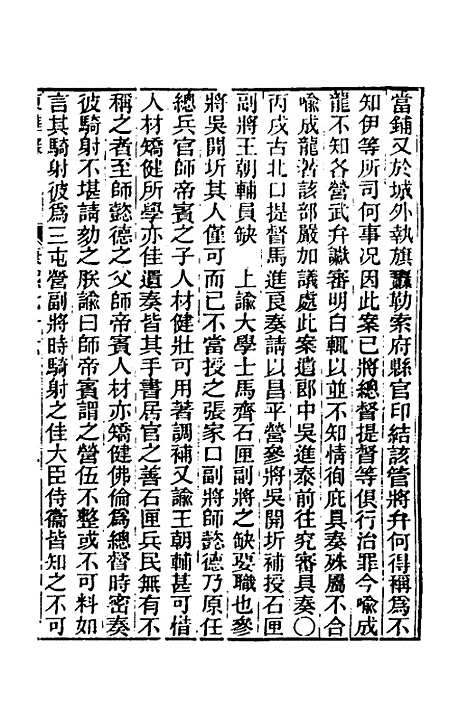 當鋪又於城外執旗纛勒索府縣官印結該管將弁何得稱爲不
知伊等所司何事況因此案已將總督提督等俱行治罪今喻成
龍不知各營武弁讞審明白輒以並不知情徇庇具奏殊屬不合
喻成龍著該部嚴加議處此案遣郎中吳進泰前往究審具奏〇
丙戌古北口提督馬進良奏請以昌平營參將吳開圻補授石匣
副將王朝輔員缺　上諭大學士馬齊石匣副將之缺要職也參
將吳開圻其人僅可而已不當授之張家口副將師懿德乃原任
總兵官師帝賓之子人材健壯可用著調補又諭王朝輔甚可惜
人材矯健所學亦佳遺奏皆其手書居官之善石匣兵民無有不
稱之者至師懿德之父師帝賓人材亦矯健佛倫爲總督時密奏
彼騎射不堪請劾之朕諭曰師帝賓謂之營伍不整或不可料如
言其騎射彼爲三屯營副將時騎射之佳大臣侍衞皆知之不可